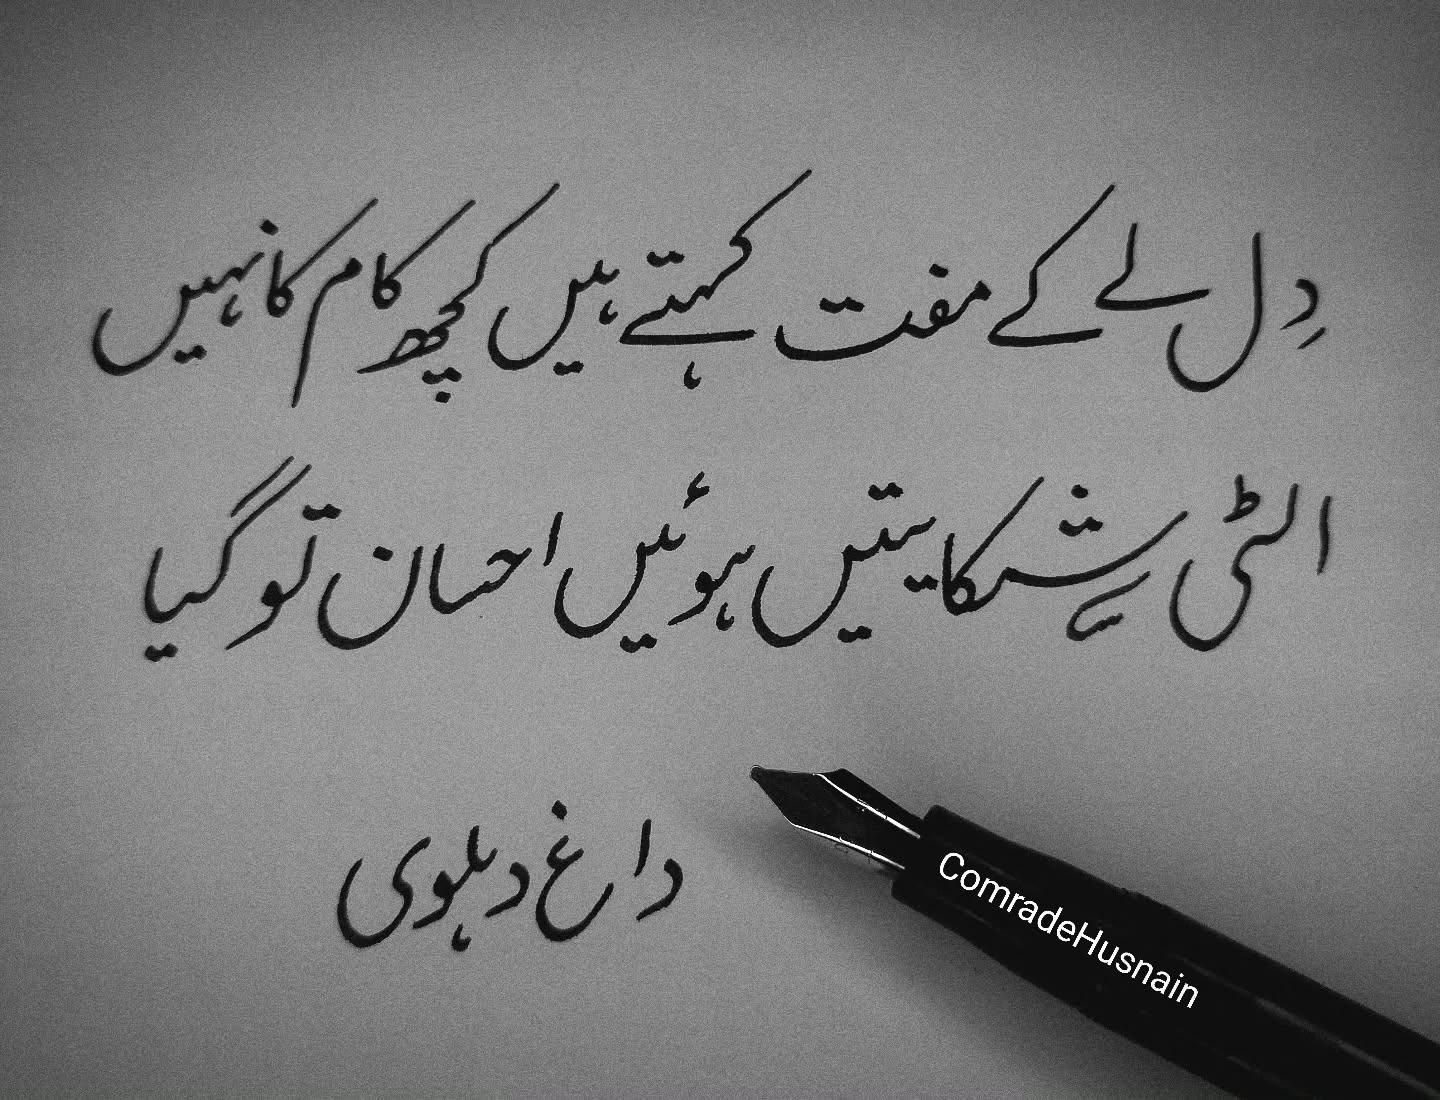 دِل لے کے مفت کہتے ہیں کچھ کام کا نہیں
الٹی شِکایتیں ہوئیں احسان تو گیا
داغ دہلوی
ComradeHusnain